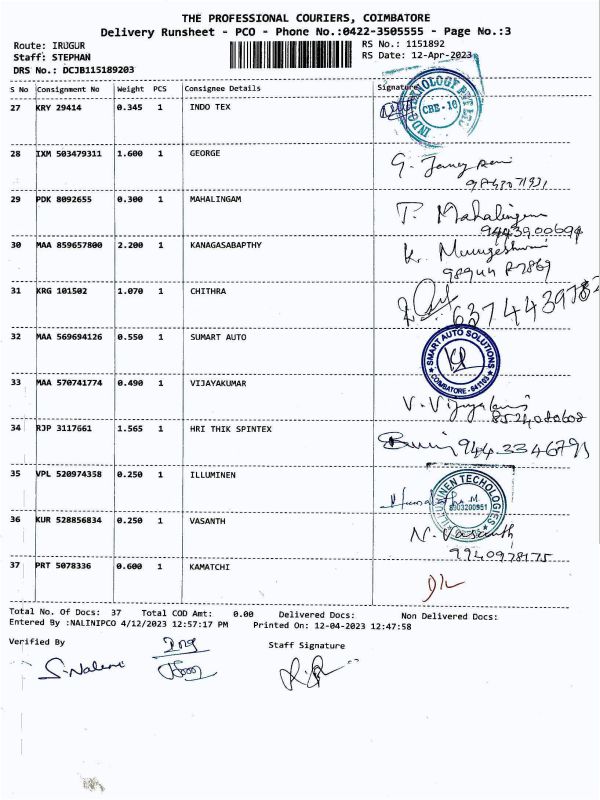 THE PROFESSIONAL COURIERS, COIMBATORE
Delivery Runsheet - PCO - Phone No.:0422-3505555 - Page No.:3
Route: IRUGUR
RS No.: 1151892
Staff: STEPHAN
RS Date: 12-Apr-2023
DRS No.: DCJB115189203
S No Consignment No Weight PCS Consignee Details Signature
27 KRY 29414 0.345 1 INDO TEX
CBE - 10
28 IXM 503479311 1.600 1 GEORGE
29 PDK 8092655 0.300 1 MAHALINGAM
T. Mahalingam
9443900694
30 MAA 859657800 2.200 1 KANAGASABAPTHY
K. Murugeshwari
31 KRG 101502 1.070 1 CHITHRA
6374439782
32 MAA 569694126 0.550 1 SUMART AUTO
SMART AUTO SOLUTIONS
33 MAA 570741774 0.490 1 VIJAYAKUMAR
8524080608
34 RJP 3117661 1.565 1 HRI THIK SPINTEX
9443346791
35 VPL 520974358 0.250 1 ILLUMINEN
ILLUMINEN TECHOLOGIES
8903200951
36 KUR 528856834 0.250 1 VASANTH
N. Vasanth
9940978175
37 PRT 5078336 0.600 1 KAMATCHI
Total No. Of Docs: 37 Total COD Amt: 0.00 Delivered Docs: Non Delivered Docs:
Entered By :NALINIPCO 4/12/2023 12:57:17 PM Printed On: 12-04-2023 12:47:58
Verified By
Staff Signature
S. Nalini